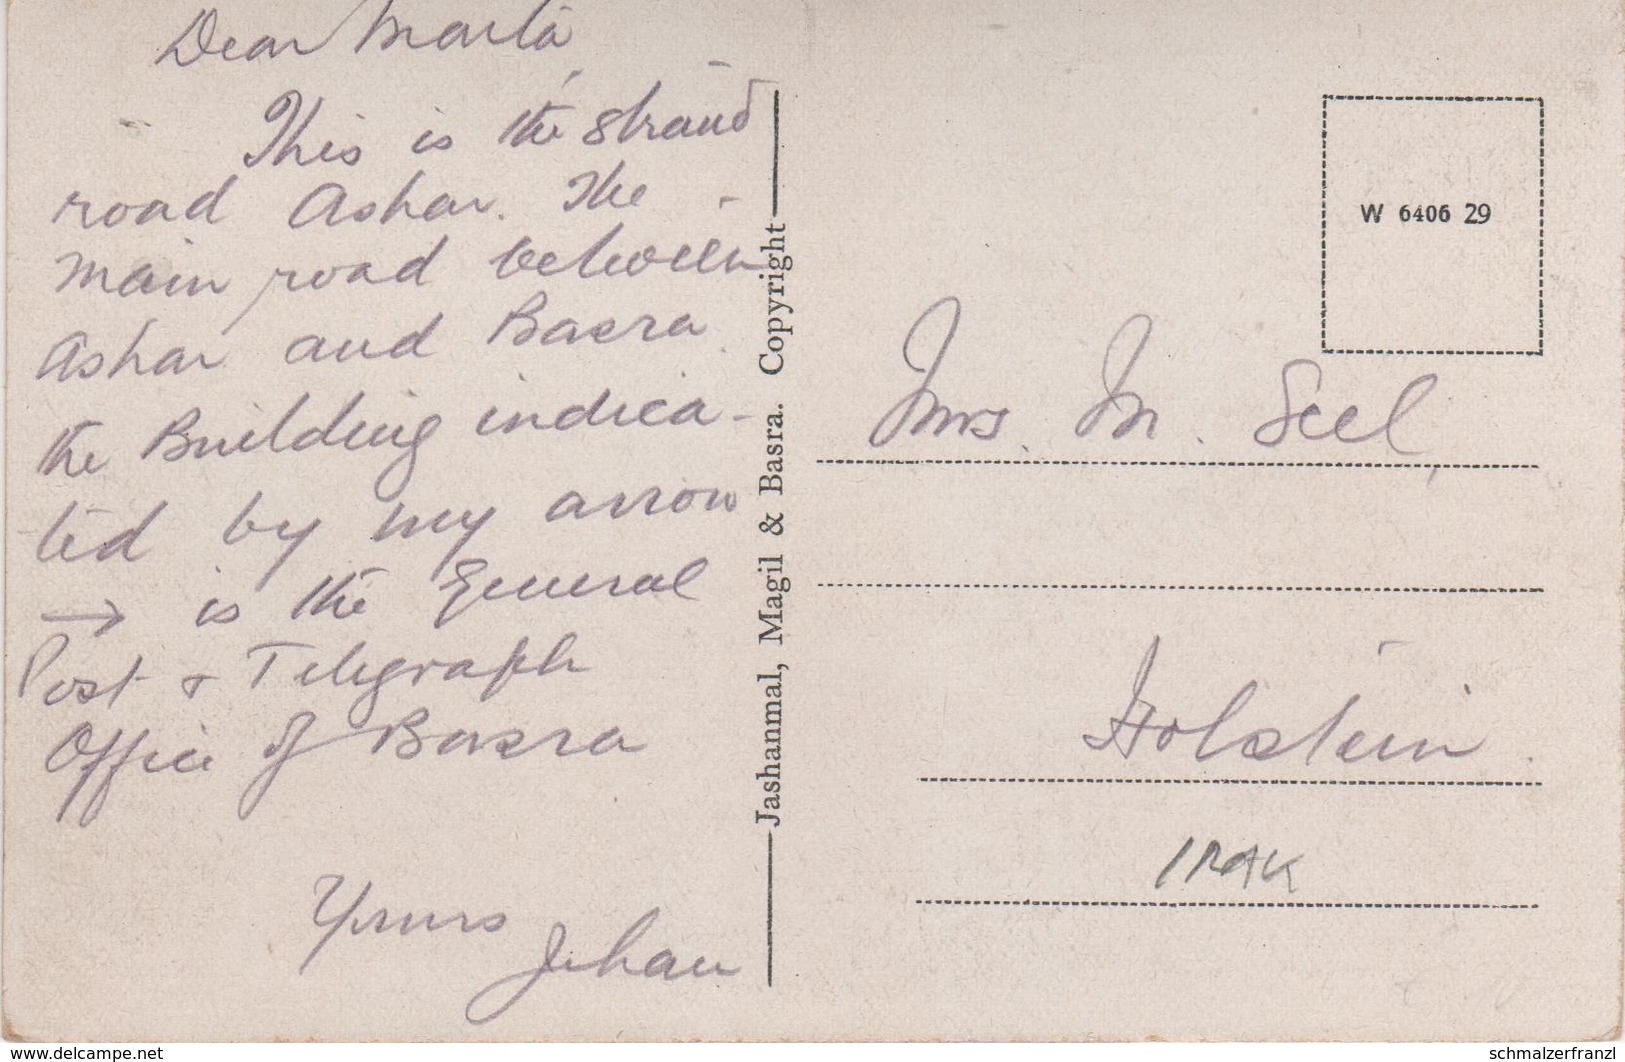 Dear Marta
This is the Strand
road Ashar. The
main road between
Ashar and Basra
the Building indica-
ted by my arrow
→ is the General
Post & Telegraph
Office of Basra
Yours
Jehan
Jashanmal, Magil & Basra. Copyright
W 6406 29
Mrs. M. Seel,
Holstein.
IRAK
www.delcampe.net
schmalzerfranzl